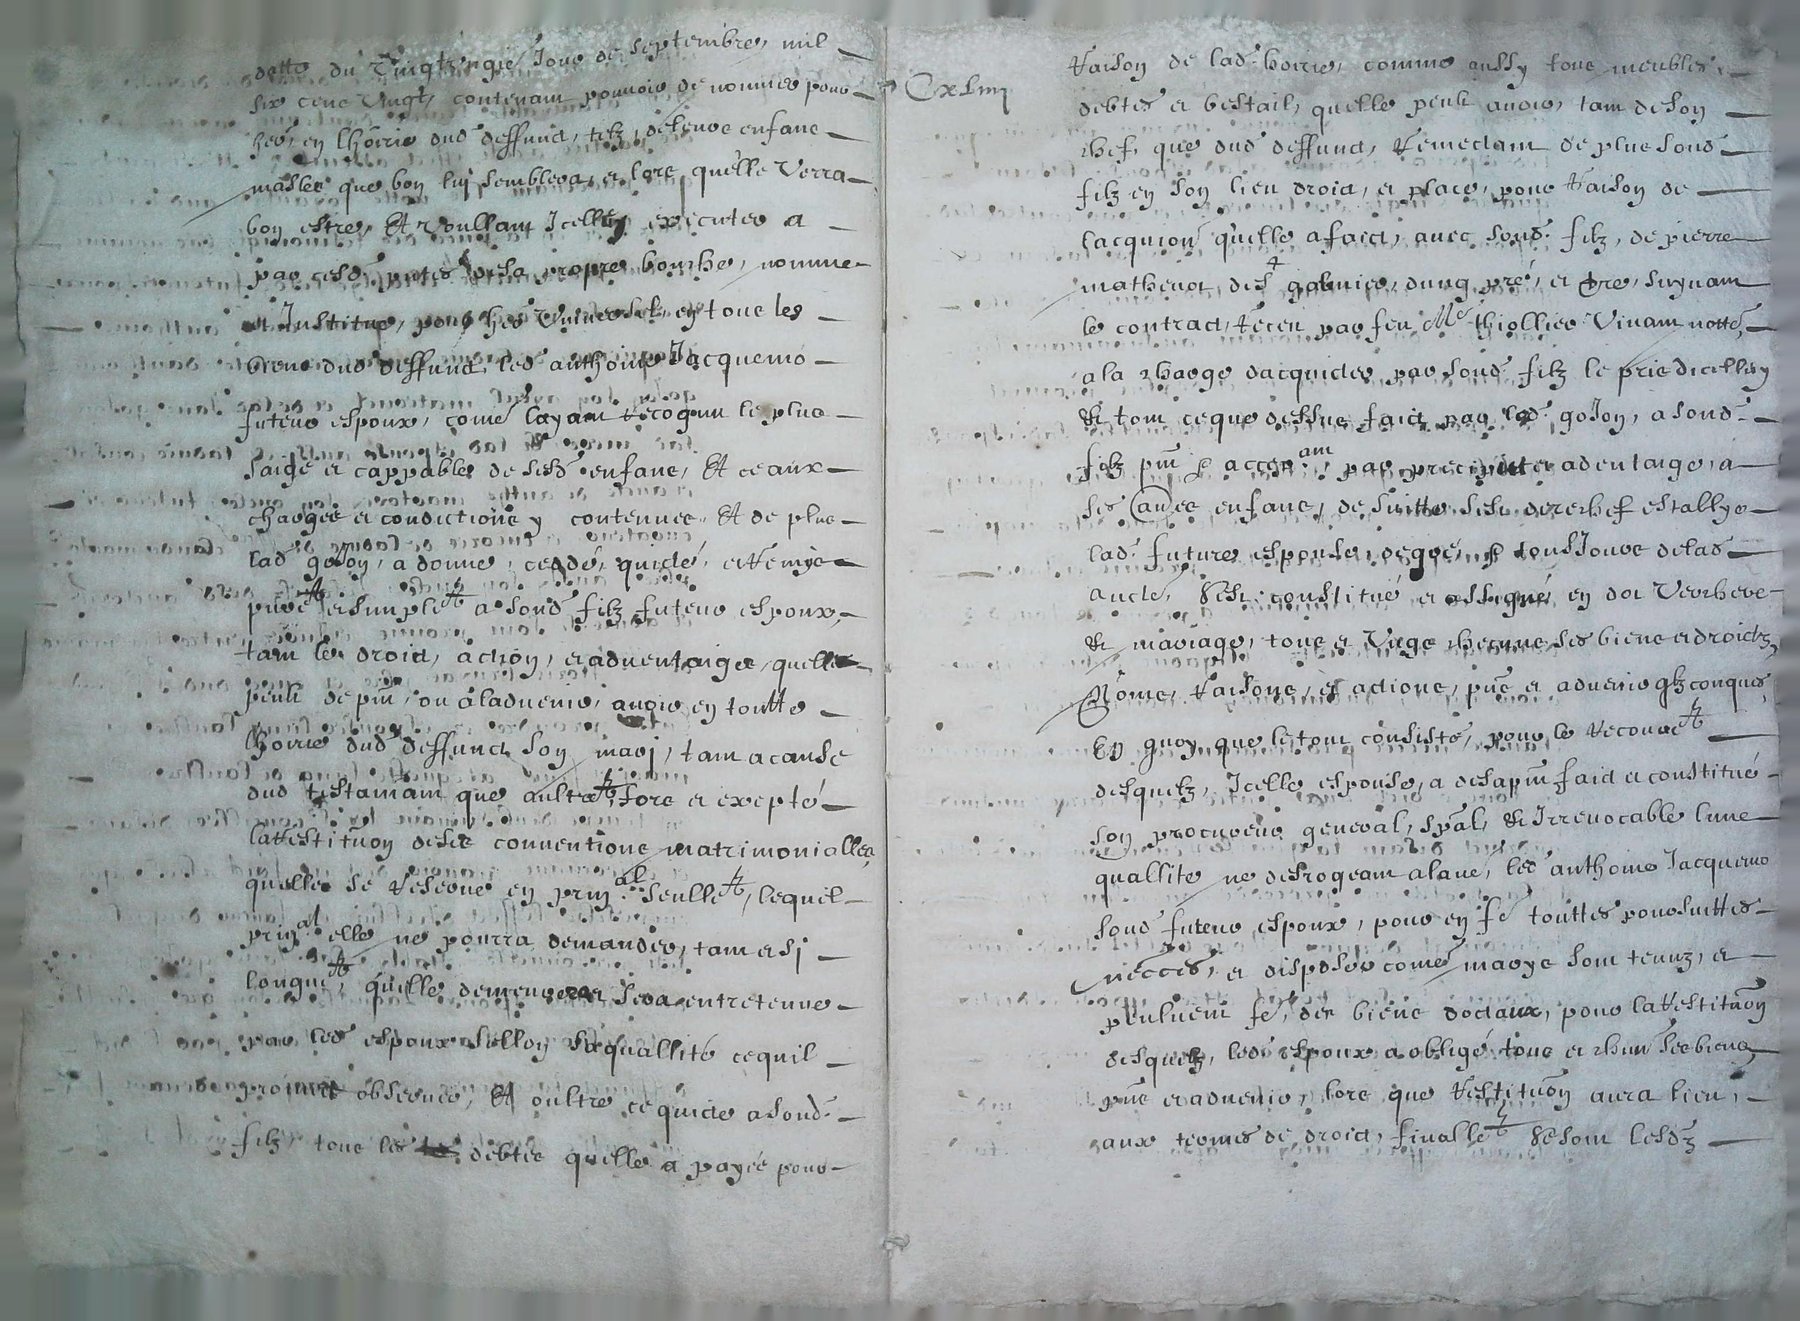 datte du vingtziesme Jour de septembre, mil
six cens vingt, contenant pouvoir de nommer pour
her, en lhoirie dud deffunct, telz, de leurs enfans
masles que bon luy semblera, et lors quelle verra
bon estre, Et voullant Icelluy executer a
par cesd pntes de sa propre bouche, nomme
et Institue, pour her universel, en tous les
biens dud deffunct, led anthoine Jacquemo
futeur espoux, comé layant recognu le plus
saige et cappable de sesd enfans, Et ceaux
charges et condictions y contenues, Et de plus
lad goJon, a donné, ceddé, quicté, et remys
puret et simplet a sond filz futeur espoux,
tant le droict, action, et adventaiges, quelle
peult de pnt, ou à ladvenir, avoir en toutte
lhoirie dud deffunct son mary, tant a cause
dud testamant que aultret, fors et excepté
la restituon de ses conventions matrimonialles
quelle se reserve en prinal seullet, lequel
prinal elle ne pourra demander, tant et si
longut, quelle demeurera et sera entretenue
par led espoux sellon sa quallité ce quil
promet observer, Et oultre ce quicte a sond
filz, tous les debtes quelle a payés pour
Cxliiij
raison de lad hoirie, comme aussy tous meubles,
debtes et bestail, quelle peult avoir, tant de son
chef, que dud deffunct, remectant de plus sond
filz en son lieu droict, et place, pour raison de
lacquion quelle a faict, avec sond filz, de pierre
mathevot dit galmier, dung pré, et tre, suyvant
le contract, receu par feu Me thiollier vivant notte,
a la charge dacquicter par sond filz le prie dicelluy
Et tout ce que dessus faict par lad goJon, a sond
filz pnt & accepant par preciput et adventaige, a
ses aues enfans, de suitte sest derechef establye
lad future espouse, & tousJours de lad
aucté, sest constitué et assigné en dot verchere
Et mariage, tous et ungs checuns ses biens et droictz,
Nōms, raisons, et actions, pnt et advenir qlzconques,
En quoy que le tout consiste, pour le recouvet
desquelz, Icelle espouse, a des a pnt faict et constitué
son procureur general, spal, Et Irrevocable lune
quallité ne desrogeant a lautre, led anthoine Jacquemo
sond futeur espoux, pour en fe touttes poursuittes
necces, et disposer comé marys sont tenuz, et
peulvent fe, des biens doctaux, pour la restituon
desquelz, led espoux a obligé tous et chun ses biens
pnt et advenir, lors que restituon aura lieu,
aux termes de droict, finallet se sont lesdz